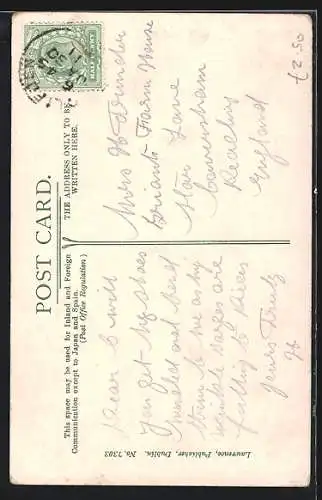 £2.50
POST CARD.
This space may be used for Inland and Foreign
Communication except to Japan and Spain.
(Post Office Regulation)
THE ADDRESS ONLY TO BE
WRITTEN HERE.
HALF PENNY
Dear will
you get my shoes
mended and send
them to me as my
are
falling to pieces
Yours Truly
H
Mrs H
Briants Farm House
Star Lane
Caversham
Reading
England
Lawrence, Publisher, Dublin. No. 7303